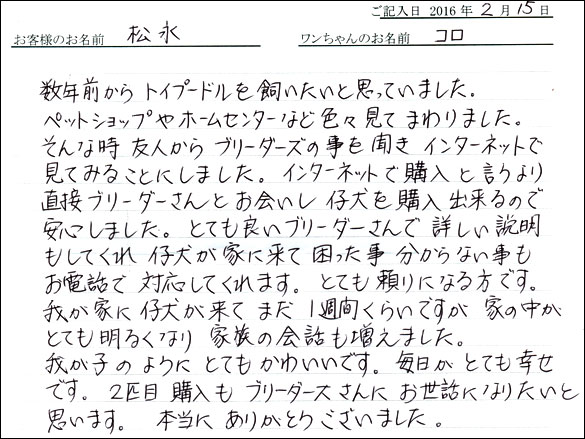 ご記入日 2016 年 2 月 15 日
お客様のお名前 松永 ワンちゃんのお名前 コロ
数年前から トイプードルを 飼いたいと 思っていました。
ペットショップや ホームセンターなど 色々 見て まわりました。
そんな時 友人から ブリーダーズの事を 聞き インターネットで
見てみることにしました。インターネットで 購入 と 言うより
直接ブリーダーさんと お会いし 仔犬を 購入 出来るので
安心しました。とても良いブリーダーさんで 詳しい 説明
もしてくれ 仔犬が 家に来て 困った事 分からない事も
お電話で 対応してくれます。とても 頼りになる方です。
我が家に 仔犬が 来て まだ 1週間くらいですが 家の中が
とても 明るくなり 家族の会話も 増えました。
我が子の ように とても かわいいです。毎日が とても 幸せ
です。2匹目 購入も ブリーダーズさんに お世話になりたいと
思います。 本当に ありがとうございました。